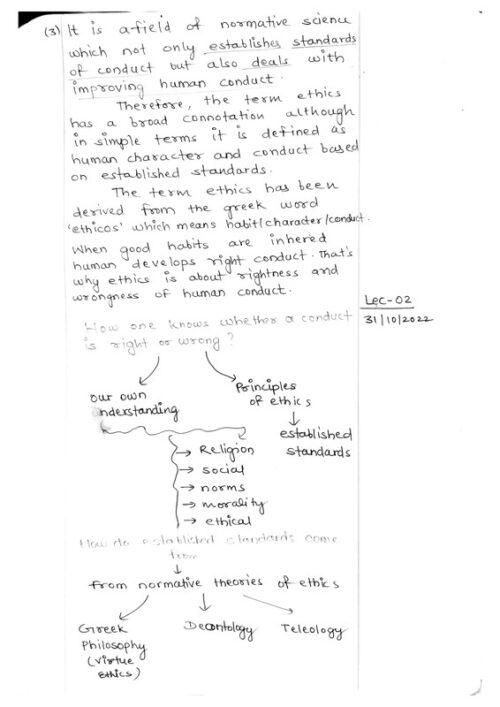 (3) It is a field of normative science
which not only establishes standards
of conduct but also deals with
improving human conduct.
Therefore, the term ethics
has a broad connotation although
in simple terms it is defined as
human character and conduct based
on established standards.
The term ethics has been
derived from the greek word
'ethicos' which means habit/character/conduct.
When good habits are inhered
human develops right conduct. That's
why ethics is about rightness and
wrongness of human conduct.
Lec-02
31/10/2022
How one knows whether a conduct
is right or wrong?
our own
understanding
Principles
of ethics
established
standards
→ Religion
→ social
→ norms
→ morality
→ ethical
How do established standards come
from
from normative theories of ethics
Greek
Philosophy
(virtue
Ethics)
Deontology
Teleology